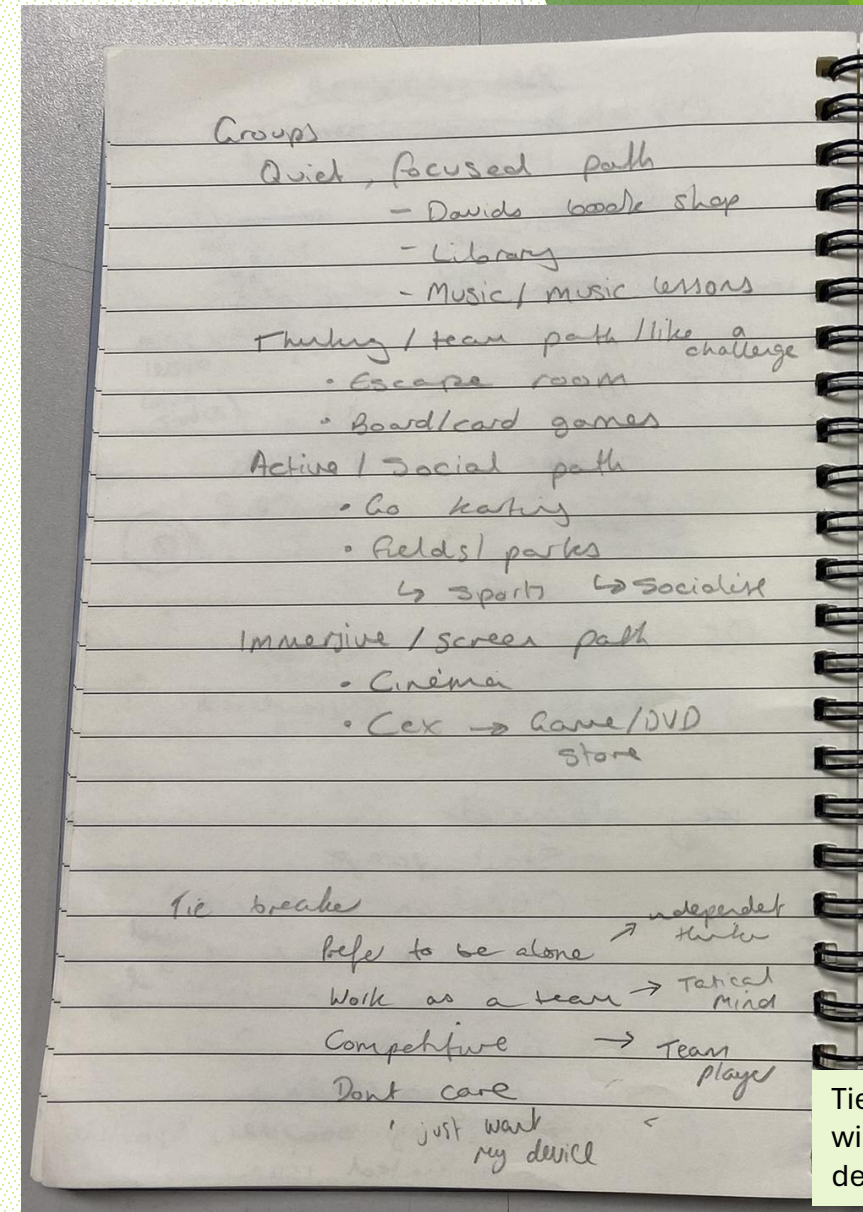 Groups
Quiet, focused path
- Davids book shop
- Library
- Music / music lessons
Thinking / team path / like a
challenge
• Escape room
• Board/card games
Active / Social path
• Go karting
• fields / parks
↳ Sports ↳ Socialise
Immersive / screen path
• Cinema
• Cex → Game/DVD
store
Tie breaker
Prefer to be alone ↗ independet
thinker
Work as a team → Tatical
Mind
Competitive → Team
player
Dont care
' just want
my device
Tie
wi
de